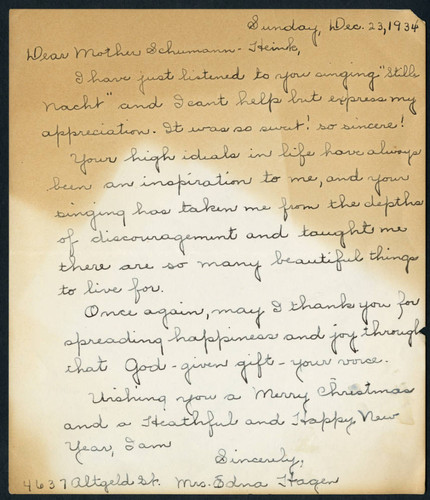 Sunday, Dec. 23, 1934
Dear Mother Schumann-Heink,
I have just listened to you singing "Stille
Nacht" and I cant help but express my
appreciation. It was so sweet! so sincere!
Your high ideals in life have always
been an inspiration to me, and your
singing has taken me from the depths
of discouragement and taught me
there are so many beautiful things
to live for.
Once again, may I thank you for
spreading happiness and joy through
that God-given gift - your voice.
Wishing you a Merry Christmas
and a Heathful and Happy New
Year, I am
Sincerely,
4637 Altgeld St. Mrs. Edna Hagen